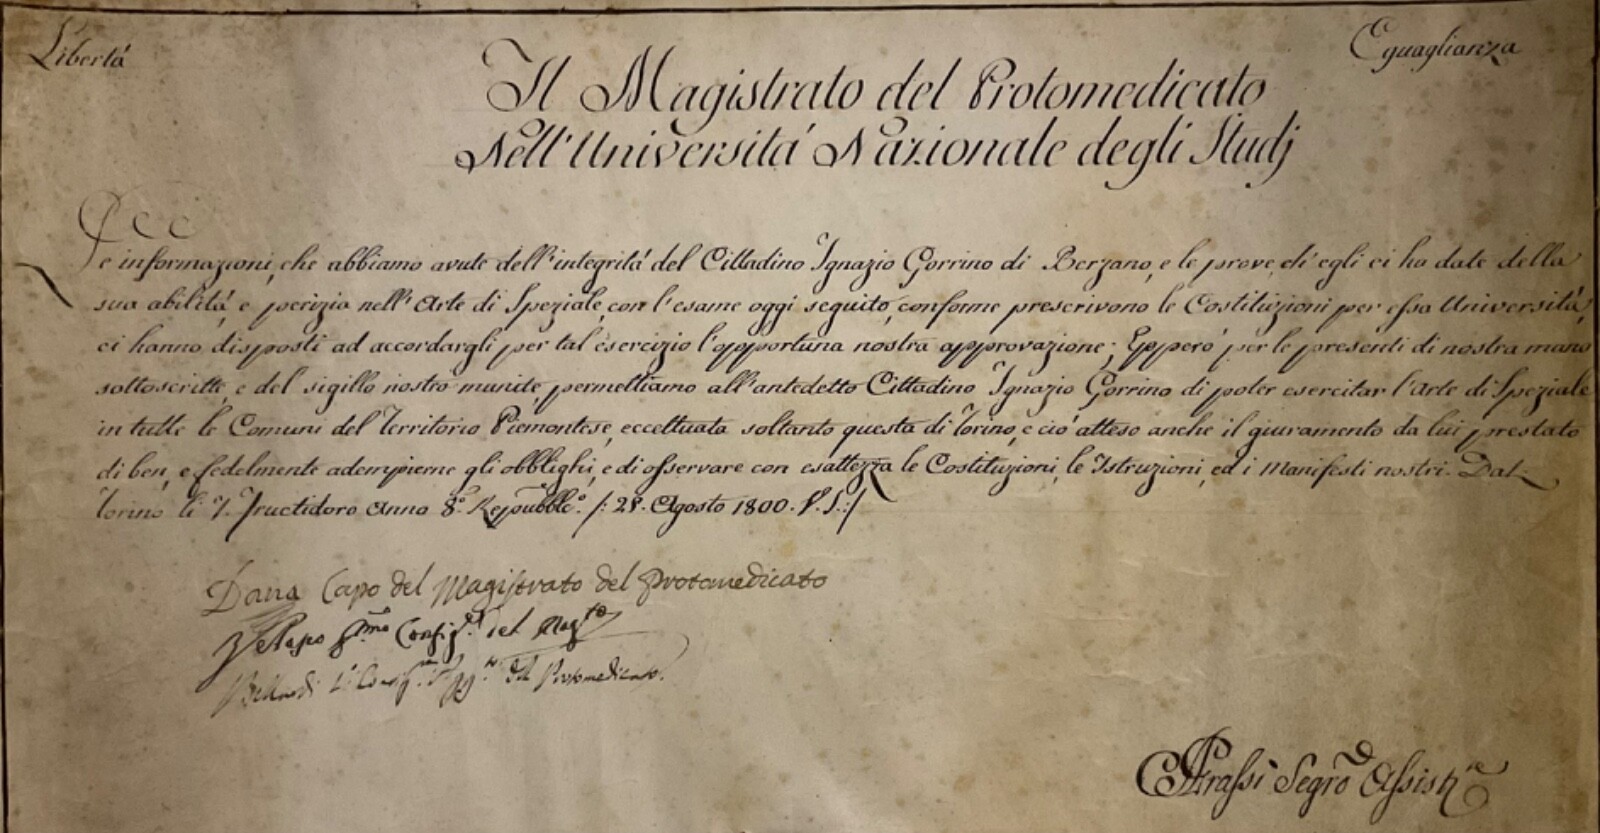 Libertá
Eguaglianza
Il Magistrato del Protomedicato
Nell'Universitá Nazionale degli Studj
Le informazioni, che abbiamo avute dell'integritá del Cittadino Ignazio Gorrino di Berzano, e le prove, ch'egli ci ha date della
sua abilitá, e perizia nell'Arte di Speziale, con l'esame oggi seguito, conforme prescrivono le Costituzioni per essa Universitá,
ci hanno disposti ad accordargli per tal esercizio l'opportuna nostra approvazione; Epperó per le presenti di nostra mano
sottoscritte, e del sigillo nostro munite, permettiamo all'antedetto Cittadino Ignazio Gorrino di poter esercitar l'Arte di Speziale
in tutte le Comuni del Territorio Piemontese, eccettuata soltanto questa di Torino, e ció atteso anche il giuramento da lui prestato
di ben, e fedelmente adempierne gli obblighi, e di osservare con esattezza le Costituzioni, le Istruzioni, ed i Manifesti nostri. Dat.
Torino li 7. Fructidoro Anno 8.º Repubbl.º /: 25. Agosto 1800. V. S. :/
Dana Capo del Magistrato del Protomedicato
del Mag.to
del Protomedicato.
Segro Assist.e